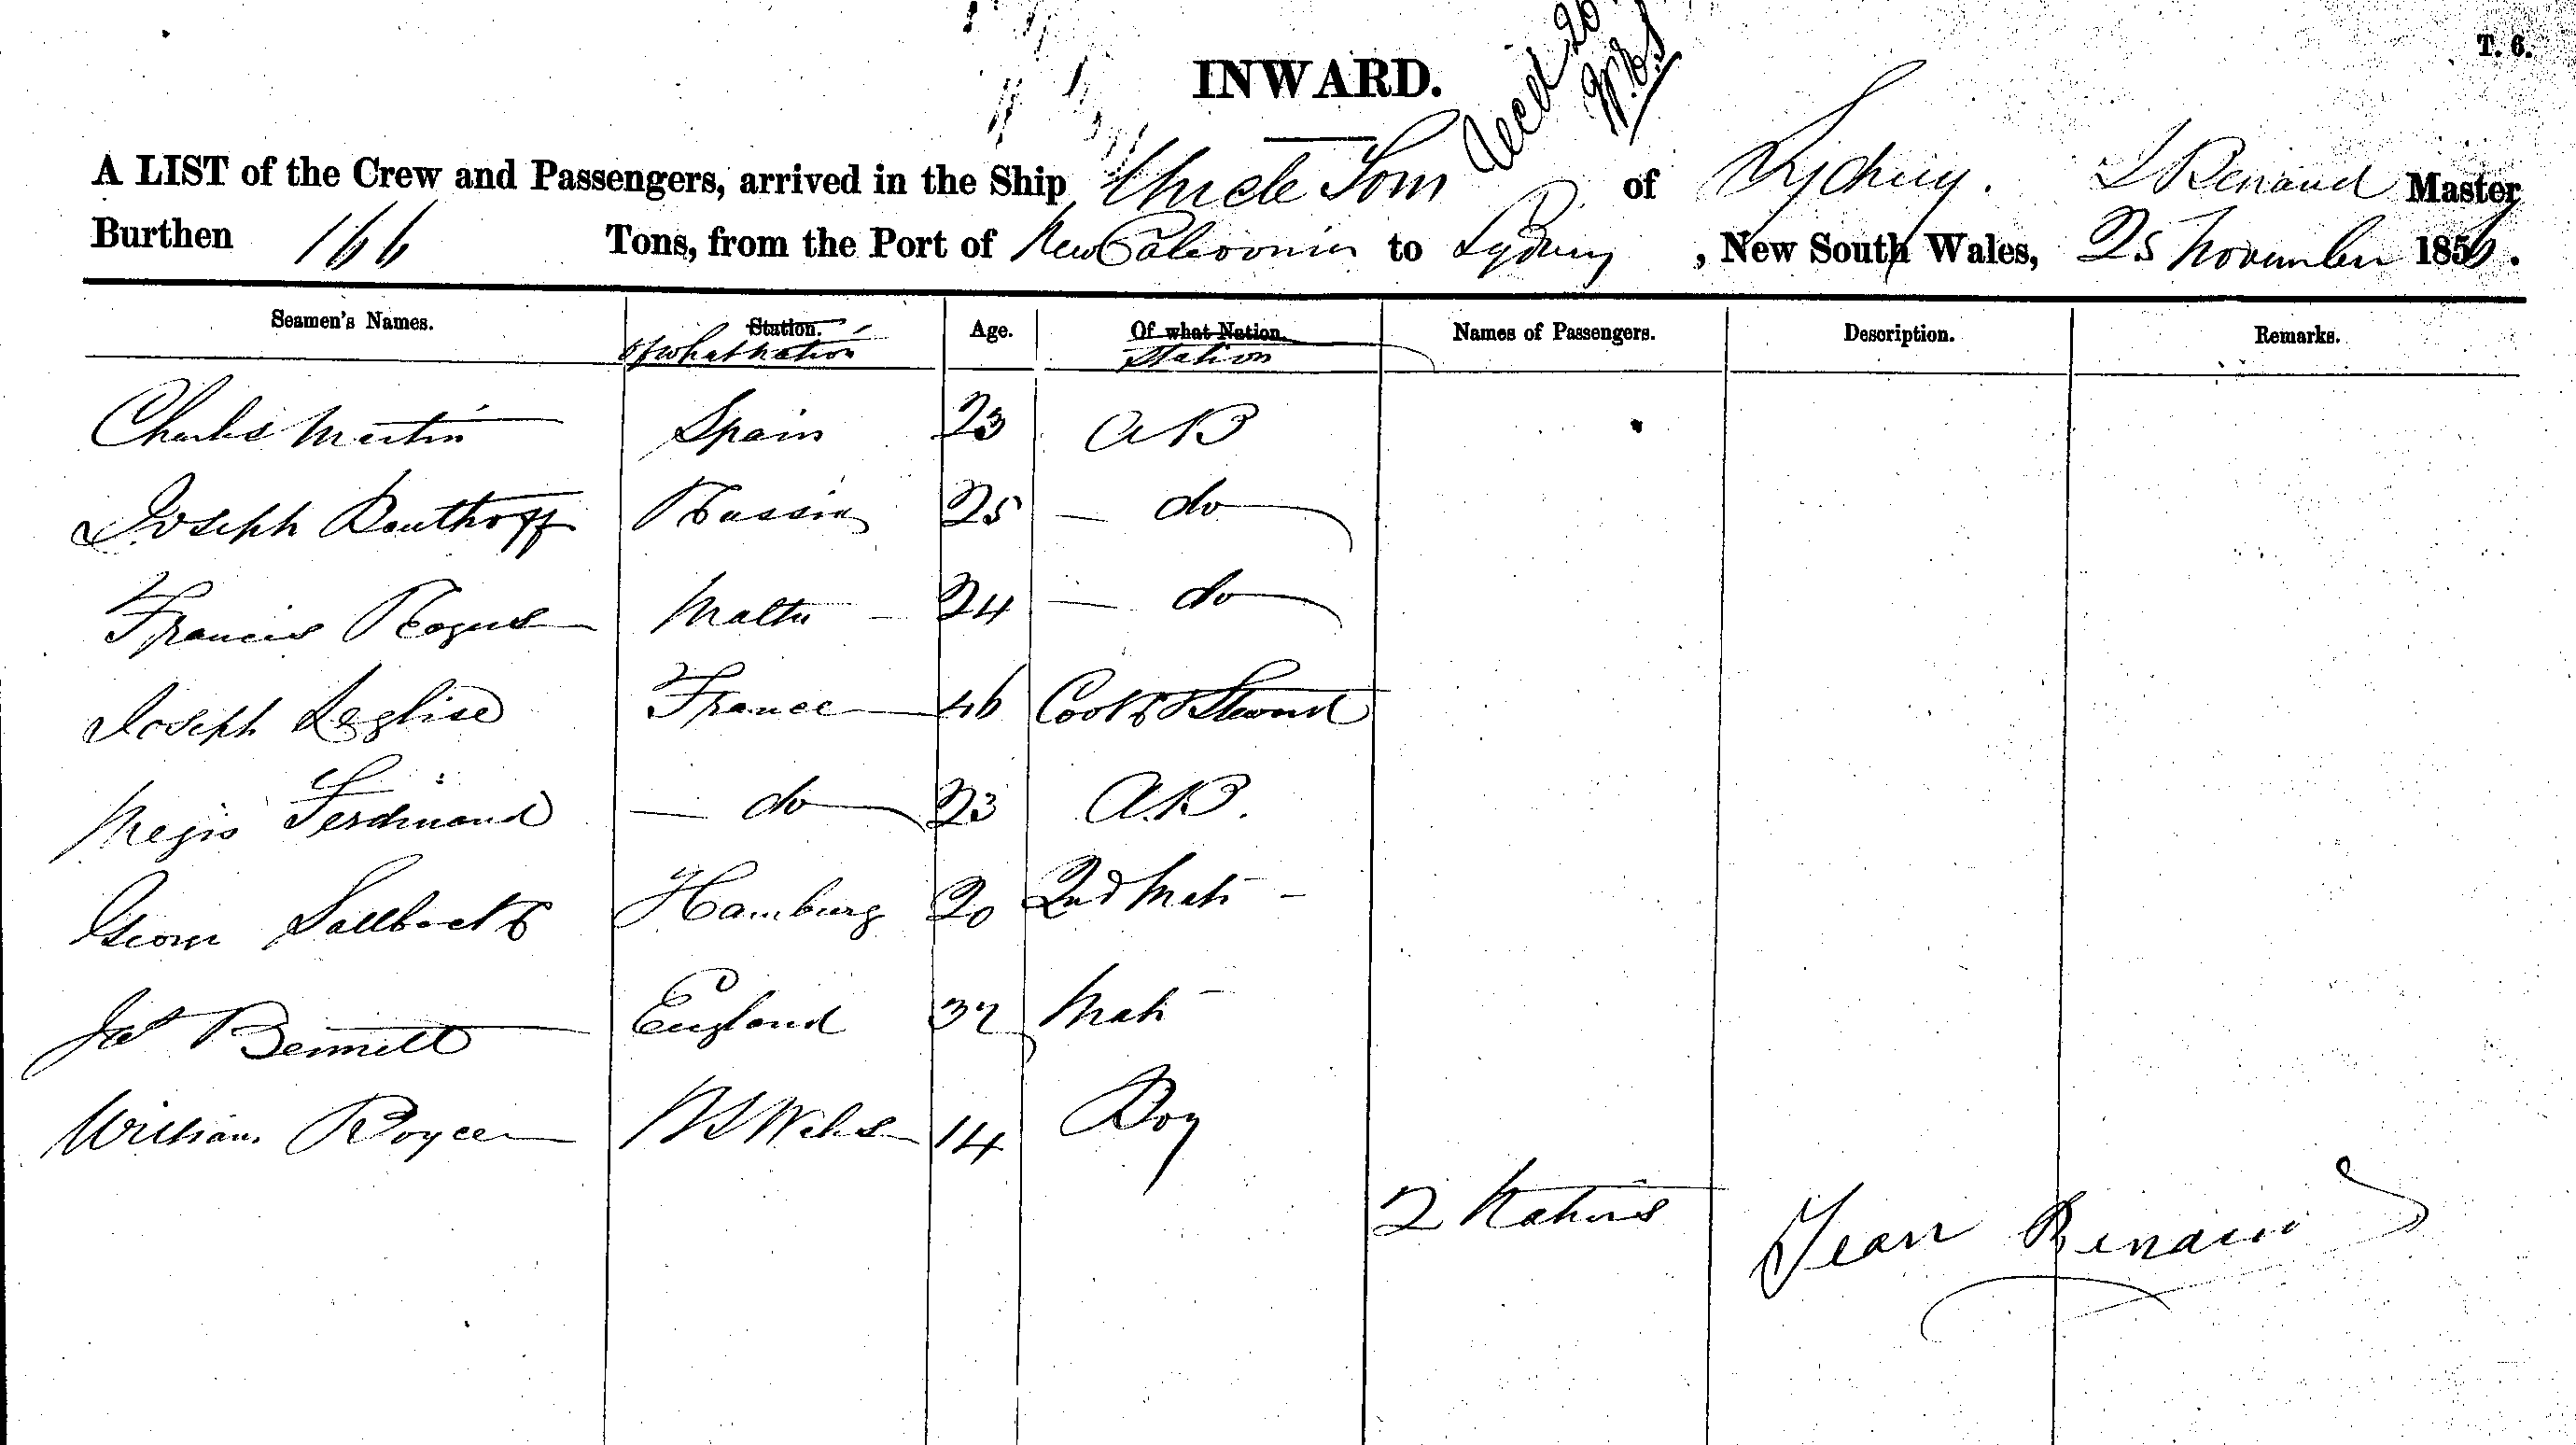 T. 6.
INWARD.
A LIST of the Crew and Passengers, arrived in the Ship Uncle Tom of Sydney. J Renaud Master
Burthen 166 Tons, from the Port of New Caledonia to Sydney, New South Wales, 25 November 1856.
Seamen's Names. Station. Of what Nation Age. Of what Nation. Station Names of Passengers. Description. Remarks.
Charles Martin Spain 23 AB
Joseph Russia 25 do
Francis Rogers Malta 24 do
Joseph Leglise France 46 Cook & Steward
Regis Ferdinand do 23 A.B.
George Sallback Hamburg 20 2nd Mate
Jas Bennett England 37 Mate
William Boyce N S Wales 14 Boy
2 Natives Jean Renaud